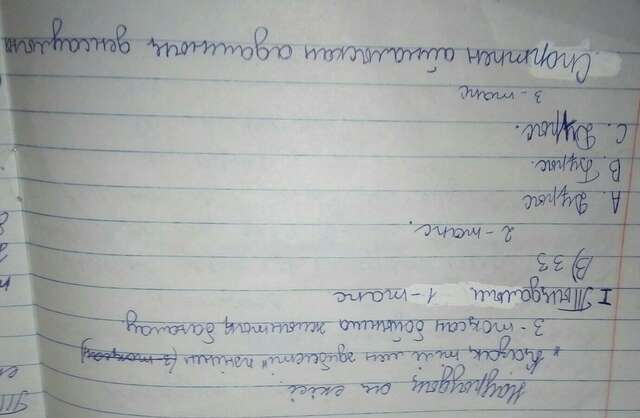 Наурыздың он екісі.
"Қазақ тілі мен әдебиеті" пәнінен (3-тоқсан)
3-тоқсан бойынша жиынтық бағалау
I Тыңдалым 1-тапс
В) 33
2-тапс.
А. Дұрыс
В. Бұрыс.
С. Дұрыс.
3-тапс
Спортпен айналысқан адамның денсаулығы